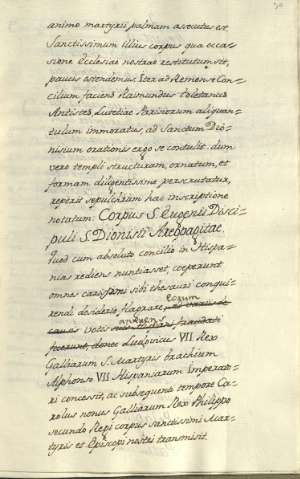 animo martyrii palmam assecutus est
Sanctissimum illius corpus qua occa-
sione Ecclesiae nostrae restitutum sit,
paucis ostendemus. Iter ad Remense Con-
cilium faciens Raimundus Toletanus
Antistes, Lutetiae Parisiorum aliquan-
tulum immoratus, ad Sanctum Dio-
nisium orationis ergo se contulit. dum
vero templi structuram, ornatum, et
formam diligentissime perscrutatur,
reperit sepulchrum hac inscriptione
notatum. Corpus S. Eugenii Disci-
puli S. Dionisii Areopagitae.
Quod cum absoluto concilio in Hispa-
nias rediens nuntiasset, coeperunt
omnes carissimi sibi thesauri conqui-
rendi desiderio flagrare,
eorum
votis
annuens
Ludovicus VII Rex
Galliarum S. Martyris brachium
Alphonso VII Hispaniarum Imperato-
ri concessit, ac subsequenti tempore Ca-
rolus nonus Galliarum Rex Philippo
secundo Regi corpus sanctissimi Mar-
tyris et Episcopi nostri transmisit.